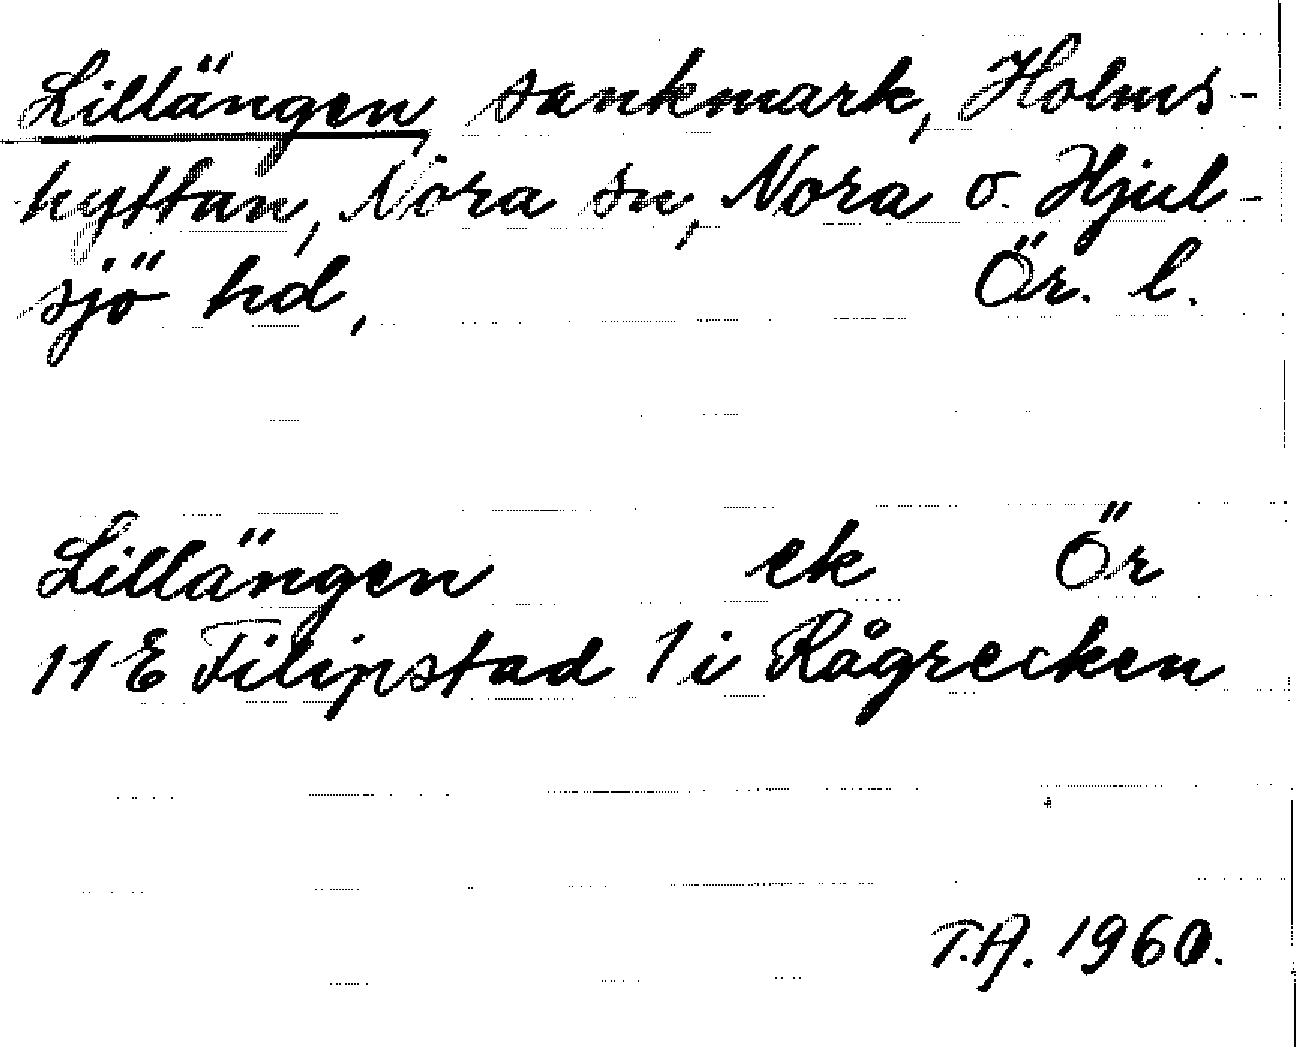 Lillängen, sankmark, Holms-
hyttan, Nora sn, Nora o. Hjul-
sjö hd, Ör. l.
Lillängen ek Ör
11E Filipstad 1i Rågrecken
T.A. 1960.